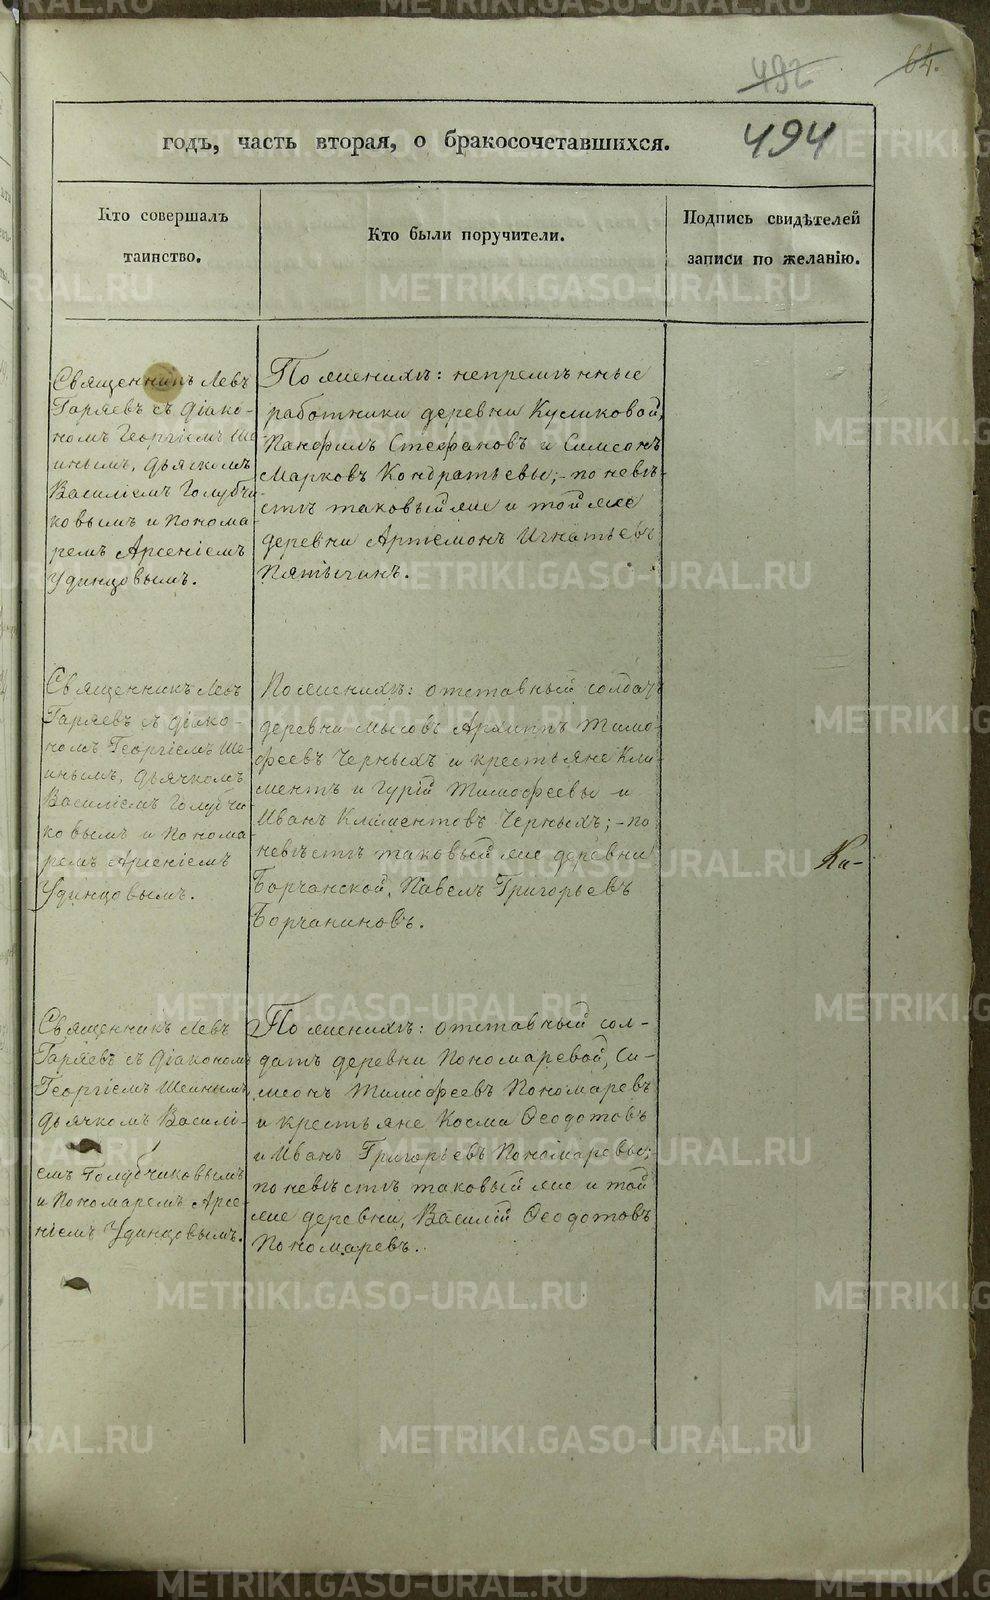 64.
492
494
годъ, часть вторая, о бракосочетавшихся.
Кто совершалъ
таинство.
Кто были поручители.
Подпись свидѣтелей
записи по желанію.
Священникъ Левъ
Гаряевъ съ діако-
номъ Георгіемъ Ше
инымъ, дьячкомъ
Василіемъ Голубчи-
ковымъ и понома
ремъ Арсеніемъ
Удинцовымъ.
По женихѣ: непремѣнные
работники деревни Куликовой,
Панфилъ Стефановъ и Симеонъ
Марковъ Кондратьевы; - по невѣ-
стѣ таковый же и той же
деревни Артемонъ Игнатьевъ
Пятычинъ.
Священникъ Левъ
Гаряевъ съ діако-
номъ Георгіемъ Ше-
инымъ, дьячкомъ
Василіемъ Голубчи
ковымъ и понома
ремъ Арсеніемъ
Удинцовымъ.
По женихѣ: отставный солдатъ
деревни Мысовъ Архиппъ Тимо-
феевъ Черныхъ и крестьяне Кли-
ментъ и Гурій Тимофеевы и
Иванъ Климентовъ Черныхъ; - по
невѣстѣ таковый же деревни
Борчанской, Павелъ Григорьевъ
Борчаниновъ.
Ка-
Священникъ Левъ
Гаряевъ съ діакономъ
Георгіемъ Шеинымъ,
дьячкомъ Василі-
емъ Голубчиковымъ
и пономаремъ Арсе-
ніемъ Удинцовымъ.
По женихѣ: отставный сол-
датъ деревни Пономаревой, Си-
меонъ Тимофеевъ Пономаревъ
и крестьяне Косма Ѳеодотовъ
и Иванъ Григорьевъ Пономаревы;
по невѣстѣ таковый же и той
же деревни, Василій Ѳеодотовъ
Пономаревъ.
METRIKI.GASO-URAL.RU